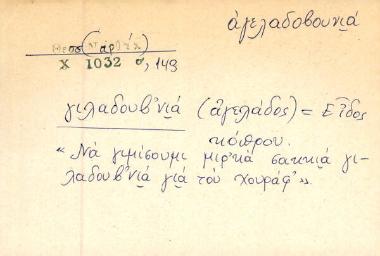 ἀγελαδοβουνιά
Θεσσ
Χ 1032 σ, 143
γιλαδουβ'νιά (ἀγελάδος) = Εἶδος
κόπρου.
"Νὰ γιμίσουμι μιρ'κά σακκιά γι-
λαδουβ'νιά γιά τοὺ χουράφ'".